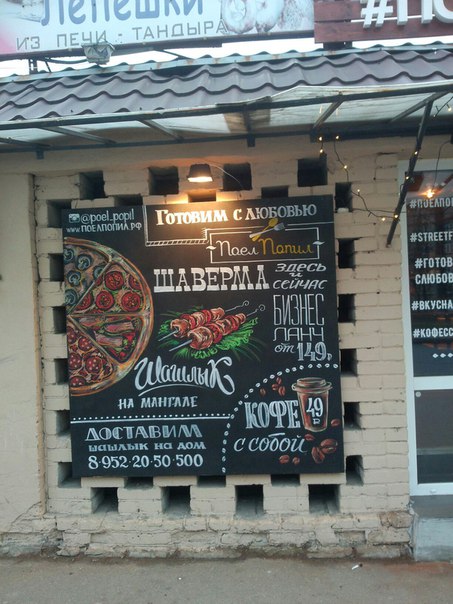 Лепешки
ИЗ ПЕЧИ - ТАНДЫРА
#ПО
@poel_popil
www.ПОЕЛПОПИЛ.РФ
ГОТОВИМ С ЛЮБОВЬЮ
ПоелПопил
ШАВЕРМА
ЗДЕСЬ
И
СЕЙЧАС
БИЗНЕС
ЛАНЧ
ОТ 149р
Шашлык
НА МАНГАЛЕ
КОФЕ
49
₽
С СОБОЙ
ДОСТАВИМ
ШАШЛЫК НА ДОМ
8-952-20-50-500
#ПОЕЛПО
#STREETF
#ГОТОВ
СЛЮБОВ
#ВКУСНА
#КОФЕСС